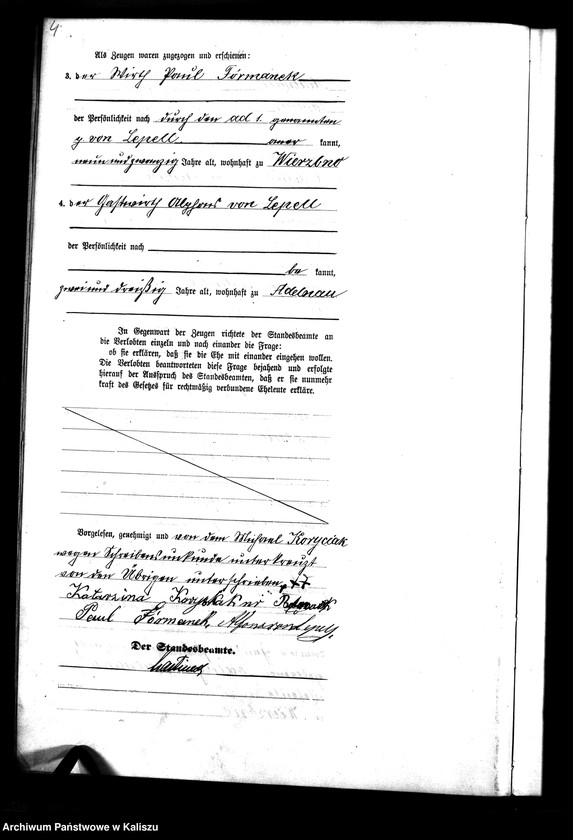 4
Als Zeugen waren zugezogen und erschienen:
3. der Wirth Paul Formanek
der Persönlichkeit nach durch den ad 1. genannten
von Lepell kannt,
neunundzwanzig Jahre alt, wohnhaft zu Wierzbno
4. der Gastwirth Alphons von Lepell
der Persönlichkeit nach
be kannt,
zweiunddreißig Jahre alt, wohnhaft zu Adelnau
In Gegenwart der Zeugen richtete der Standesbeamte an
die Verlobten einzeln und nach einander die Frage:
ob sie erklären, daß sie die Ehe mit einander eingehen wollen.
Die Verlobten beantworteten diese Frage bejahend und erfolgte
hierauf der Ausspruch des Standesbeamten, daß er sie nunmehr
kraft des Gesetzes für rechtmäßig verbundene Eheleute erkläre.
Vorgelesen, genehmigt und von dem Michael Koryciak
wegen Schreibensunkunde unterkreuzt
von den Übrigen unterschrieben. +++
Katarzina Koryciak
Paul Formanek, Alfons von Lepell.
Der Standesbeamte.
Archiwum Państwowe w Kaliszu